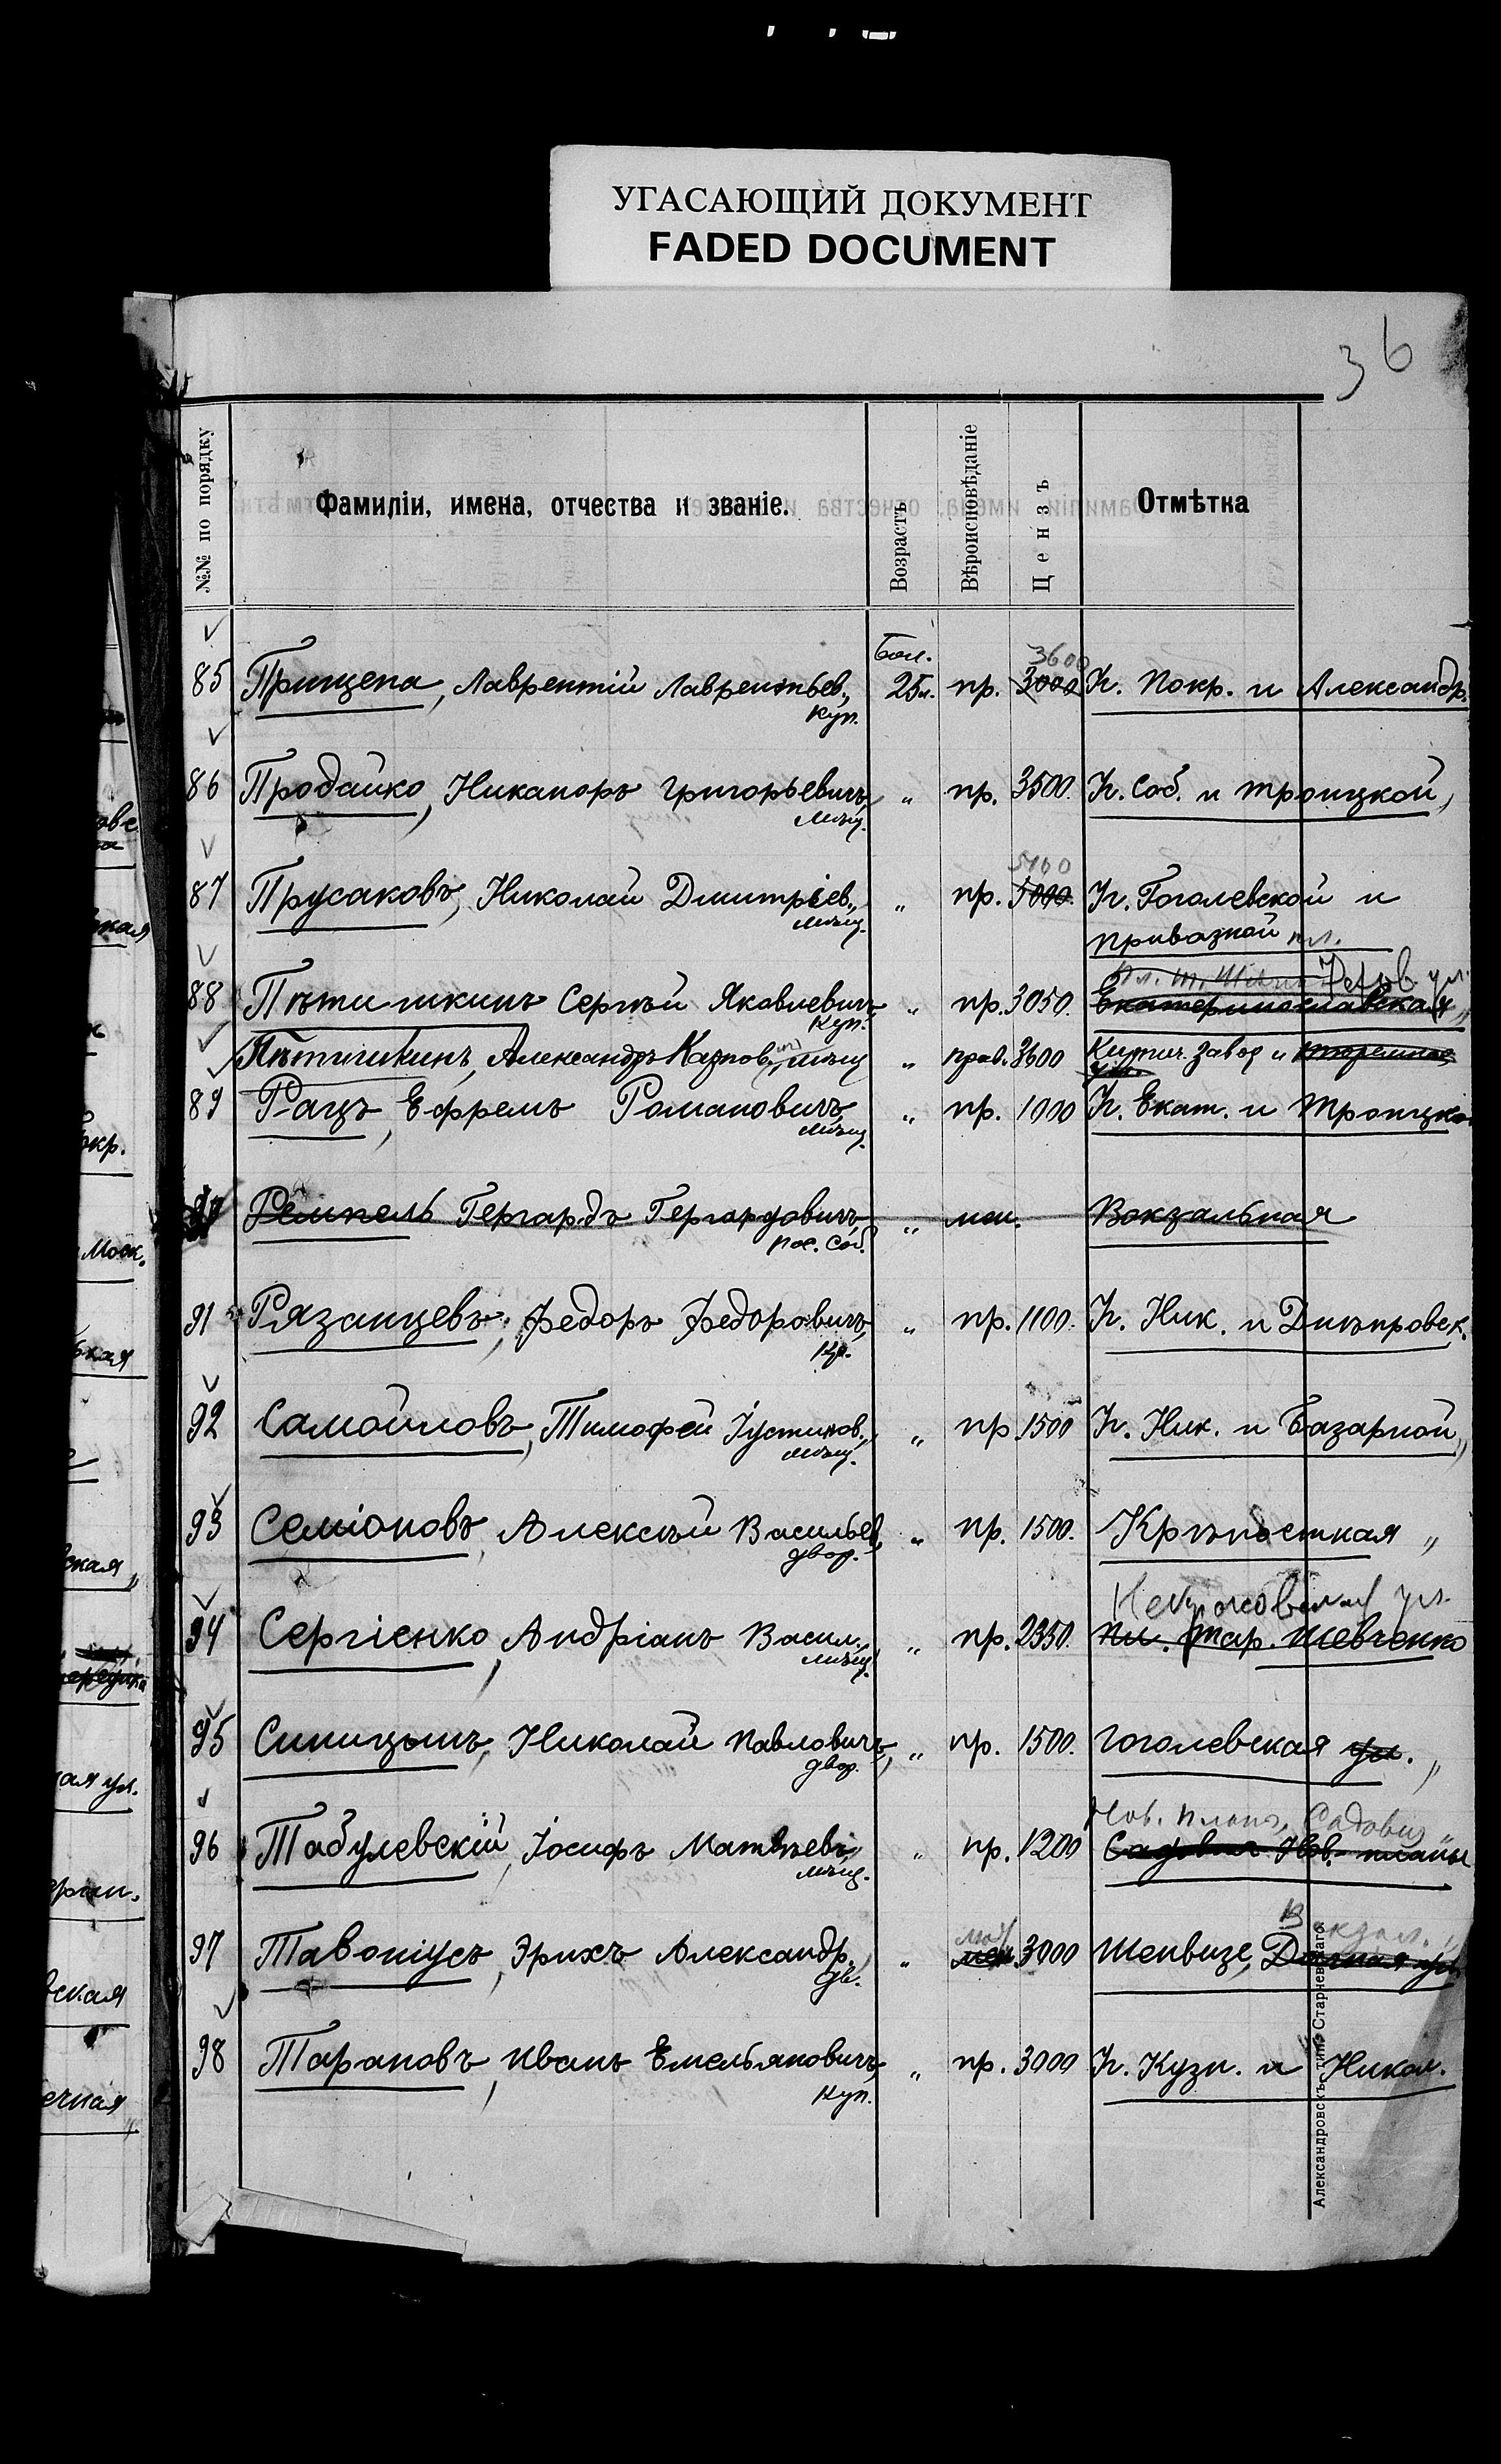 УГАСАЮЩИЙ ДОКУМЕНТ
FADED DOCUMENT
36
№№ по порядку
Фамиліи, имена, отчества и званіе.
Возрастъ
Вѣроисповѣданіе
Цензъ
Отмѣтка
Бол. 3600
85 Прищепа, Лаврентій Лаврентьев., 25 л. пр. 3000 Уг. Покр. и Александр.
куп.
86 Продайко, Никаноръ Григорьевичъ, " пр. 3500. Уг. Соб. и Троицкой,
мѣщ.
5100
87 Прусаковъ, Николай Дмитріев., " пр. 5000. Уг. Гоголевской и
мѣщ. привозной пл.
88 Пѣтишкинъ Сергѣй Яковлевичъ " пр. 3050. Екатеринославская
куп.
Пѣтишкинъ, Александръ мѣщ " прав. 3600 Кирпич. завод и
89 Рацъ, Ефремъ Романовичъ " пр. 1000 Уг. Екат. и Троицко
мѣщ.
Ремпель Гергардъ Гергардовичъ " мен. Вокзальная
пос. соб.
91 Рязанцевъ, Федоръ Федоровичъ, " пр. 1100. Уг. Ник. и Днѣпровск.
куп.
92 Самойловъ, Тимофей Іустинов., " пр. 1500 Уг. Ник. и Базарной "
мѣщ.
93 Семіоновъ, Алексѣй Васильев, " пр. 1500. Крѣпостная "
двор.
ул.
94 Сергіенко, Андріанъ Васил. " пр. 2350. Пл. Тар. Шевченко
мѣщ.
95 Синицынъ, Николай Павловичъ, " пр. 1500. Гоголевская ул. "
двор.
Нов. планъ, Садовая
96 Табулевскій, Іосифъ Матвѣевъ, " пр. 1200 Садовая Нов. планы
мѣщ.
лют
97 Тавоніусъ, Эрихъ Александр., " мен. 3000 Шенвизе,
дв.
98 Тарановъ, Иванъ Емельяновичъ, " пр. 3000 Уг. Кузн. и Никол.
куп.